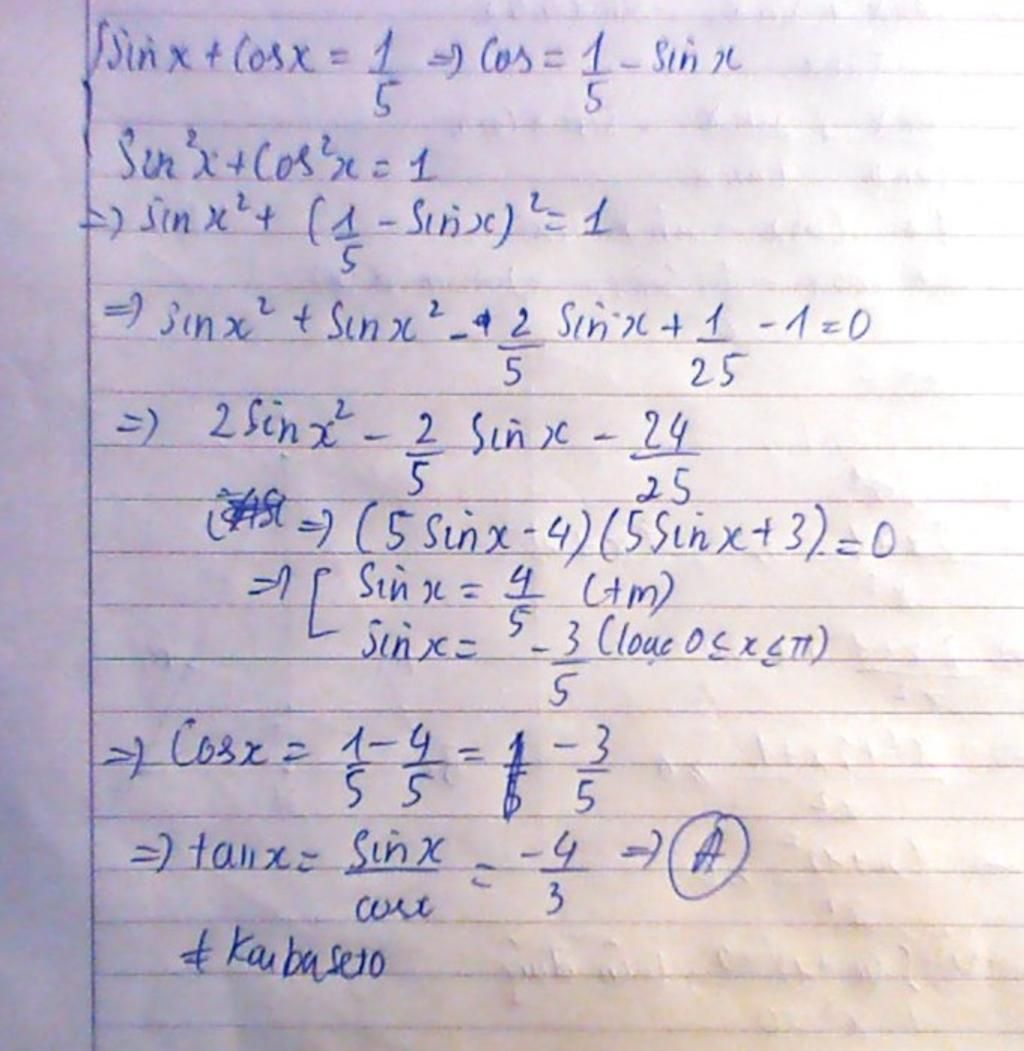 sin x + cos x = 1/5 => cos = 1/5 - sin x
Sin²x + Cos²x = 1
=> sin x² + (1/5 - sin x)² = 1
=> sin x² + sin x² - 2/5 sin x + 1/25 - 1 = 0
=> 2 sin x² - 2/5 sin x - 24/25
=> (5 sin x - 4)(5 sin x + 3) = 0
=> [ sin x = 4/5 (+m)
sin x = -3/5 (loại 0 ≤ x ≤ π)
=> Cos x = 1/5 - 4/5 = -3/5
=> tan x = sin x / cos x = -4/3 => A
# Kaibaseto